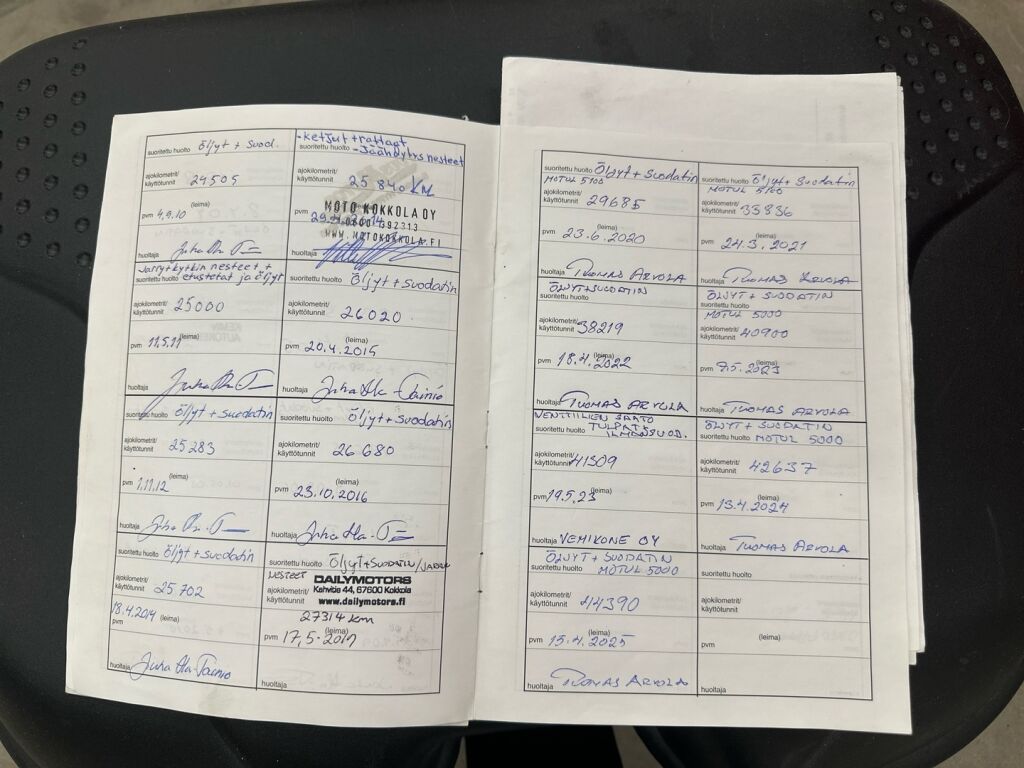 suoritettu huolto Öljyt + Suod.
ajokilometrit/
käyttötunnit 24505
(leima)
pvm 4.9.10
huoltaja
Jarru+kytkin nesteet +
suoritettu huolto etustetat ja öljyt
ajokilometrit/
käyttötunnit 25000
(leima)
pvm 11.5.11
huoltaja
suoritettu huolto Öljyt + suodatin
ajokilometrit/
käyttötunnit 25283
(leima)
pvm 1.11.12
huoltaja
suoritettu huolto Öljyt + suodatin
ajokilometrit/
käyttötunnit 25702
18.4.2014 (leima)
pvm
huoltaja Juha Ala-Tainio
- Ketjut + rattaat
suoritettu huolto - Jäähdytys nesteet
ajokilometrit/
käyttötunnit 25840 KM
MOTO KOKKOLA OY
pvm
WWW.MOTOKOKKOLA.FI
huoltaja
suoritettu huolto Öljyt + Suodatin
ajokilometrit/
käyttötunnit 26020
(leima)
pvm 20.4.2015
huoltaja Juha Ala-Tainio
suoritettu huolto Öljyt + Suodatin
ajokilometrit/
käyttötunnit 26680
(leima)
pvm 23.10.2016
huoltaja
suoritettu huolto Öljyt + SUODATIN / JARRU
NESTEET DAILYMOTORS
ajokilometrit/ Kahvitie 44, 67600 Kokkola
käyttötunnit www.dailymotors.fi
27314 km
(leima)
pvm 17.5.2017
huoltaja
suoritettu huolto Öljyt + Suodatin
MOTUL 5100
ajokilometrit/
käyttötunnit 29685
(leima)
pvm 23.6.2020
huoltaja TUOMAS ARVOLA
suoritettu huolto Öljyt + Suodatin
MOTUL 5100
ajokilometrit/
käyttötunnit 35836
(leima)
pvm 24.3.2021
huoltaja TUOMAS ARVOLA
ÖLJYT+SUODATIN
suoritettu huolto
ajokilometrit/
käyttötunnit 38219
(leima)
pvm 18.4.2022
huoltaja TUOMAS ARVOLA
ÖLJYT + SUODATIN
suoritettu huolto
MOTUL 5000
ajokilometrit/
käyttötunnit 40900
(leima)
pvm 9.5.2023
huoltaja TUOMAS ARVOLA
VENTTIILIEN SÄÄTÖ
suoritettu huolto TULPAT +
ILMANSUOD.
ajokilometrit/
käyttötunnit 41309
(leima)
pvm 19.5.23
huoltaja VEMIKONE OY
ÖLJYT + SUODATIN
suoritettu huolto MOTUL 5000
ajokilometrit/
käyttötunnit 42637
(leima)
pvm 13.4.2024
huoltaja TUOMAS ARVOLA
ÖLJYT + SUODATIN
suoritettu huolto MOTUL 5000
ajokilometrit/
käyttötunnit 44390
(leima)
pvm 15.4.2025
huoltaja TUOMAS ARVOLA
suoritettu huolto
ajokilometrit/
käyttötunnit
(leima)
pvm
huoltaja